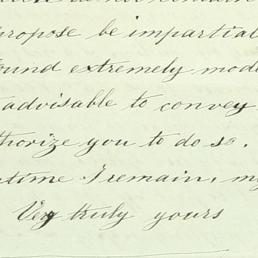 propose be impartial
found extremely mode
advisable to convey
thorize you to do so.
time I remain, my
Very truly yours